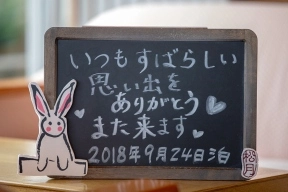 いつもすばらしい
思い出を
ありがとう
また来ます
2018年9月24日泊